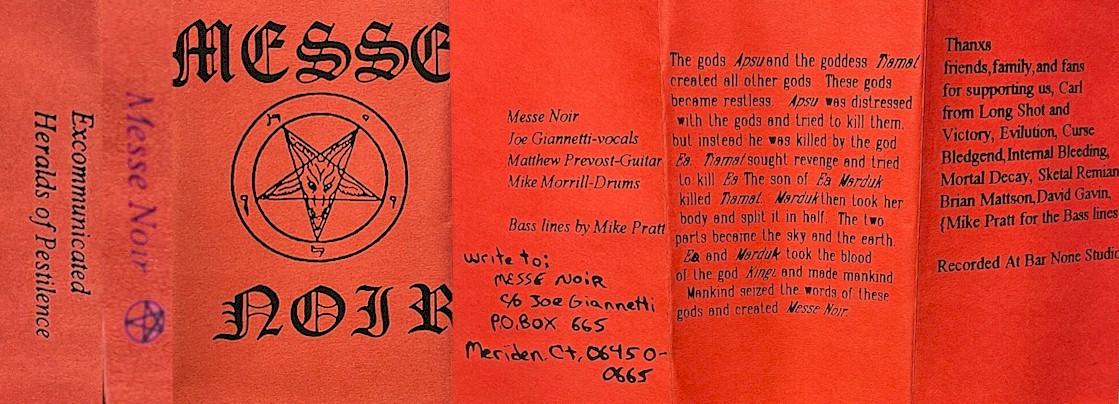 Excommunicated
Heralds of Pestilence
Messe Noir
MESSE
NOIR
Messe Noir
Joe Giannetti-vocals
Matthew Prevost-Guitar
Mike Morrill-Drums
Bass lines by Mike Pratt
Write to:
MESSE NOIR
C/o Joe Giannetti
P.O. BOX 665
Meriden, Ct, 06450-
0665
The gods Apsu and the goddess Tiamat
created all other gods. These gods
became restless. Apsu was distressed
with the gods and tried to kill them,
but instead he was killed by the god
Ea. Tiamat sought revenge and tried
to kill Ea The son of Ea Marduk
killed Tiamat. Marduk then took her
body and split it in half. The two
parts became the sky and the earth.
Ea and Marduk took the blood
of the god Kingi and made mankind
Mankind seized the words of these
gods and created Messe Noir.
Thanxs
friends,family,and fans
for supporting us, Carl
from Long Shot and
Victory, Evilution, Curse
Bledgend,Internal Bleeding,
Mortal Decay, Sketal Remian
Brian Mattson,David Gavin,
{Mike Pratt for the Bass lines
Recorded At Bar None Studio